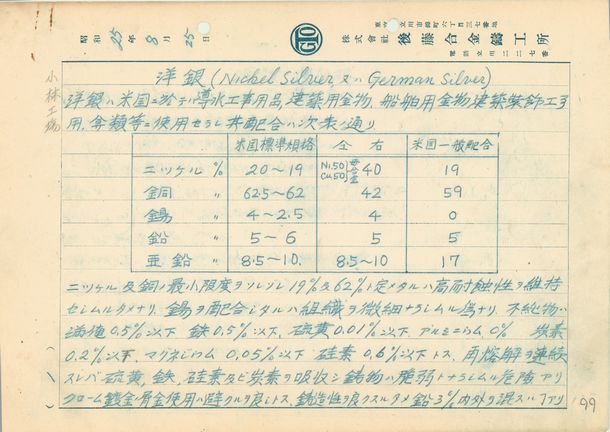 東京都立川市錦町六丁目三七番地
株式會社 後藤合金鑄工所
電話立川二二七番
昭和25年8月25日
GTO
小林工場
洋銀(Nickel Silver 又ハ German Silver)
洋銀ハ米国ニ於テハ導水工事用品,建築用金物,船舶用金物,建築装飾工事
用,弁類等ニ使用セラレ其配合ハ次表ノ通リ
米国標準規格 仝右 米国一般配合
ニッケル % 20~19 Ni.50 Cu50 母合金 40 19
銅 〃 62.5~62 42 59
錫 〃 4~2.5 4 0
鉛 〃 5~6 5 5
亜鉛 〃 8.5~10 8.5~10 17
ニッケル及銅ノ最小限度ヲソレゾレ19%&62%ト定メタルハ高耐蝕性ヲ維持
セシムルタメナリ、錫ヲ配合シタルハ組織ヲ微細ナラシムル為ナリ、不純物ハ
満俺0.5%以下 鉄0.5%以下、硫黄0.01%以下、アルミニウム0% 炭素
0.2%以下、マグネシウム 0.05%以下 硅素 0.6%以下トス、再熔解ヲ連続
スレバ硫黄,鉄,硅素及ビ炭素ヲ吸収シ鋳物ハ脆弱トナラシムル危険アリ
クローム鍍金屑金使用ハ避クルヲ良シトス、鋳造性ヲ良クスルタメ鉛3%内外ヲ混スルアリ
99